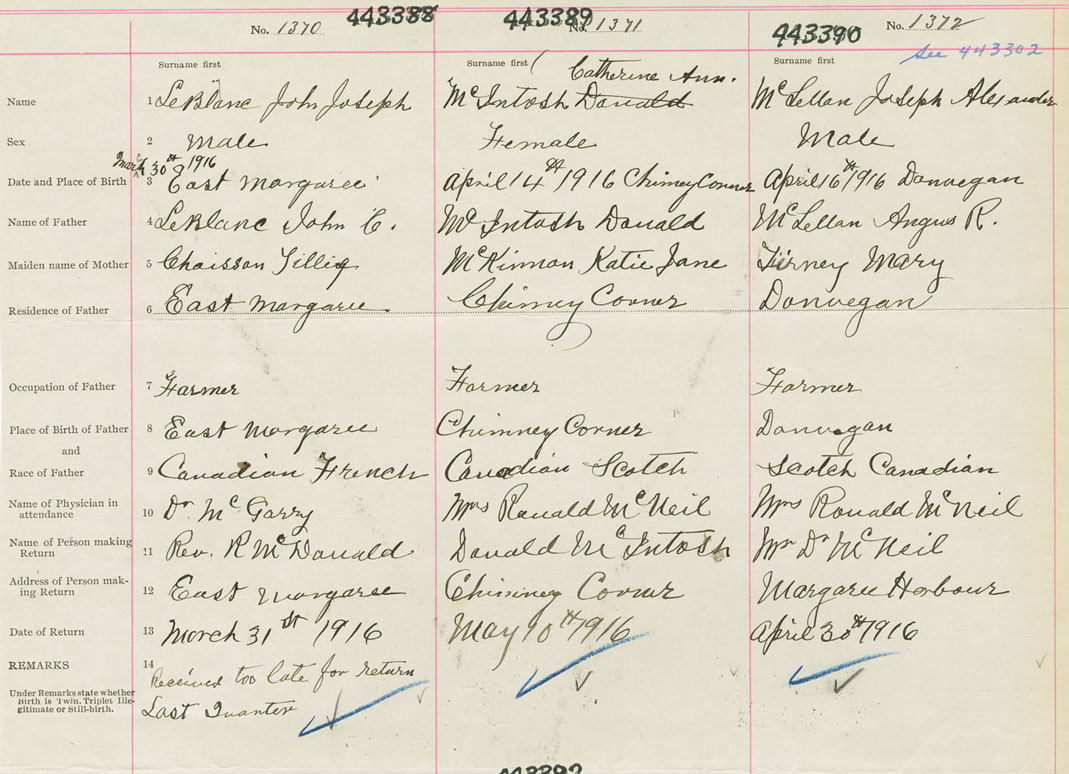 443388 443389 443390
No. 1370 No. 1371 No. 1372
See 443302
Surname first Surname first Surname first
Catherine Ann.
Name 1 LeBlanc John Joseph McIntosh Donald McLellan Joseph Alexander
Sex 2 Male Female Male
March 30th 1916
Date and Place of Birth 3 East Margaree April 14th 1916 Chimey Corner April 16th 1916 Donvegan
Name of Father 4 LeBlanc John C. McIntosh Donald McLellan Angus R.
Maiden name of Mother 5 Chaisson Tillie McKinnon Katie Jane Tirney Mary
Residence of Father 6 East Margaree Chimney Corner Donvegan
Occupation of Father 7 Farmer Farmer Farmer
Place of Birth of Father 8 East Margaree Chimney Corner Donvegan
and
Race of Father 9 Canadian French Canadian Scotch Scotch Canadian
Name of Physician in
attendance 10 Dr. McGarry Mrs Ronald McNeil Mrs Ronald McNeil
Name of Person making
Return 11 Rev. R McDonald Donald McIntosh Mr Dr McNeil
Address of Person mak-
ing Return 12 East Margaree Chimney Corner Margaree Harbour
Date of Return 13 March 31st 1916 May 10th 1916 April 30th 1916
REMARKS 14 Received too late for return
Under Remarks state whether
Birth is Twin, Triplet Ille-
gitimate or Still-birth. Last Quarter
443392